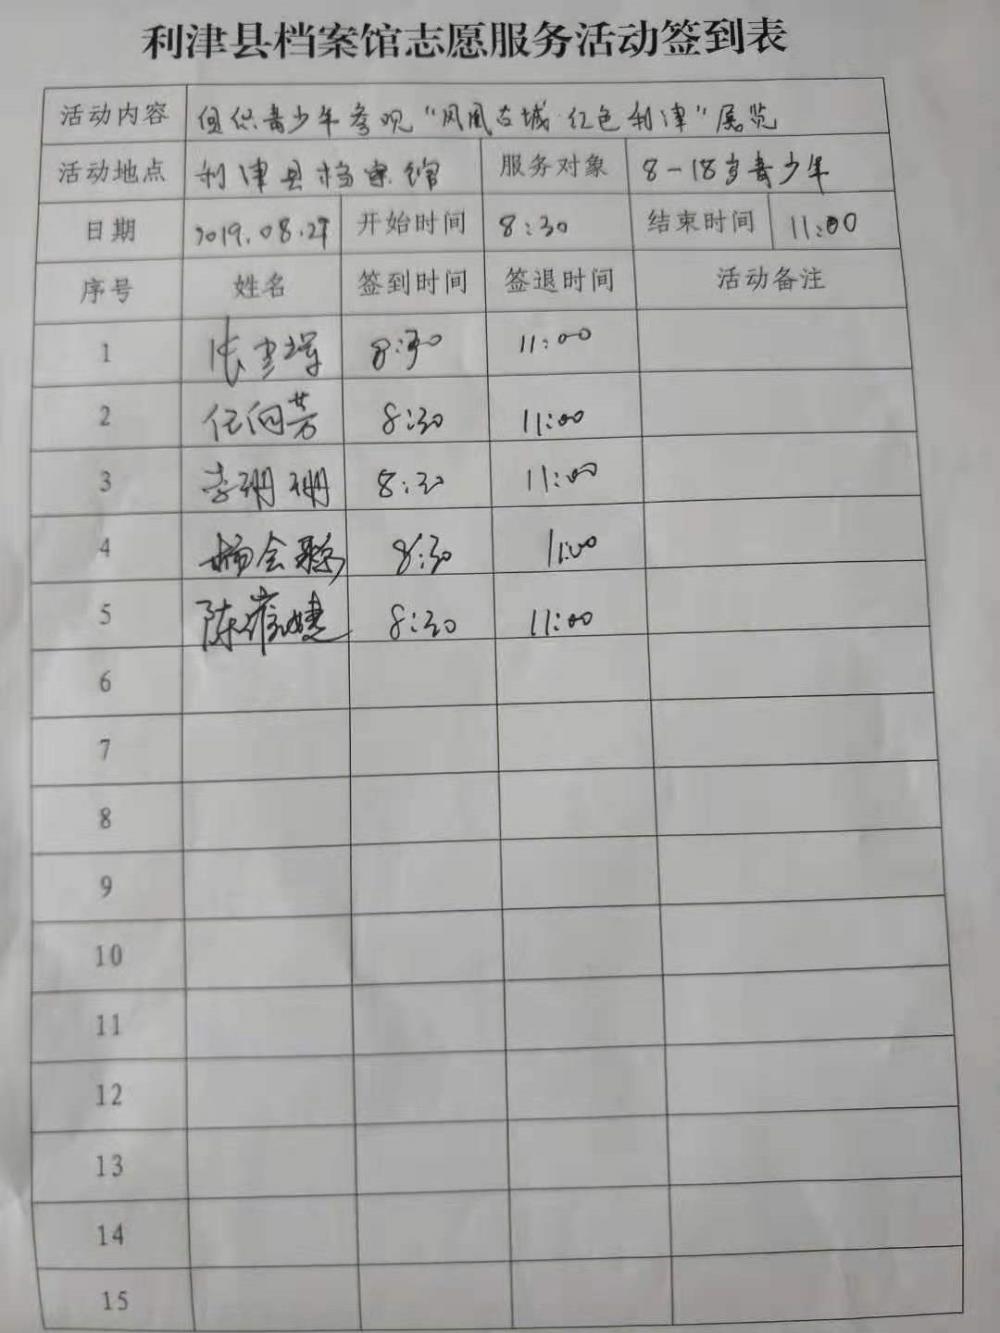 利津县档案馆志愿服务活动签到表
活动内容 组织青少年参观“凤凰古城·红色利津”展览
活动地点 利津县档案馆 服务对象 8-18岁青少年
日期 2019.08.27 开始时间 8:30 结束时间 11:00
序号 姓名 签到时间 签退时间 活动备注
1 8:30 11:00
2 任向芳 8:30 11:00
3 李珊珊 8:30 11:00
4 杨会聪 8:30 11:00
5 陈 8:30 11:00
6
7
8
9
10
11
12
13
14
15